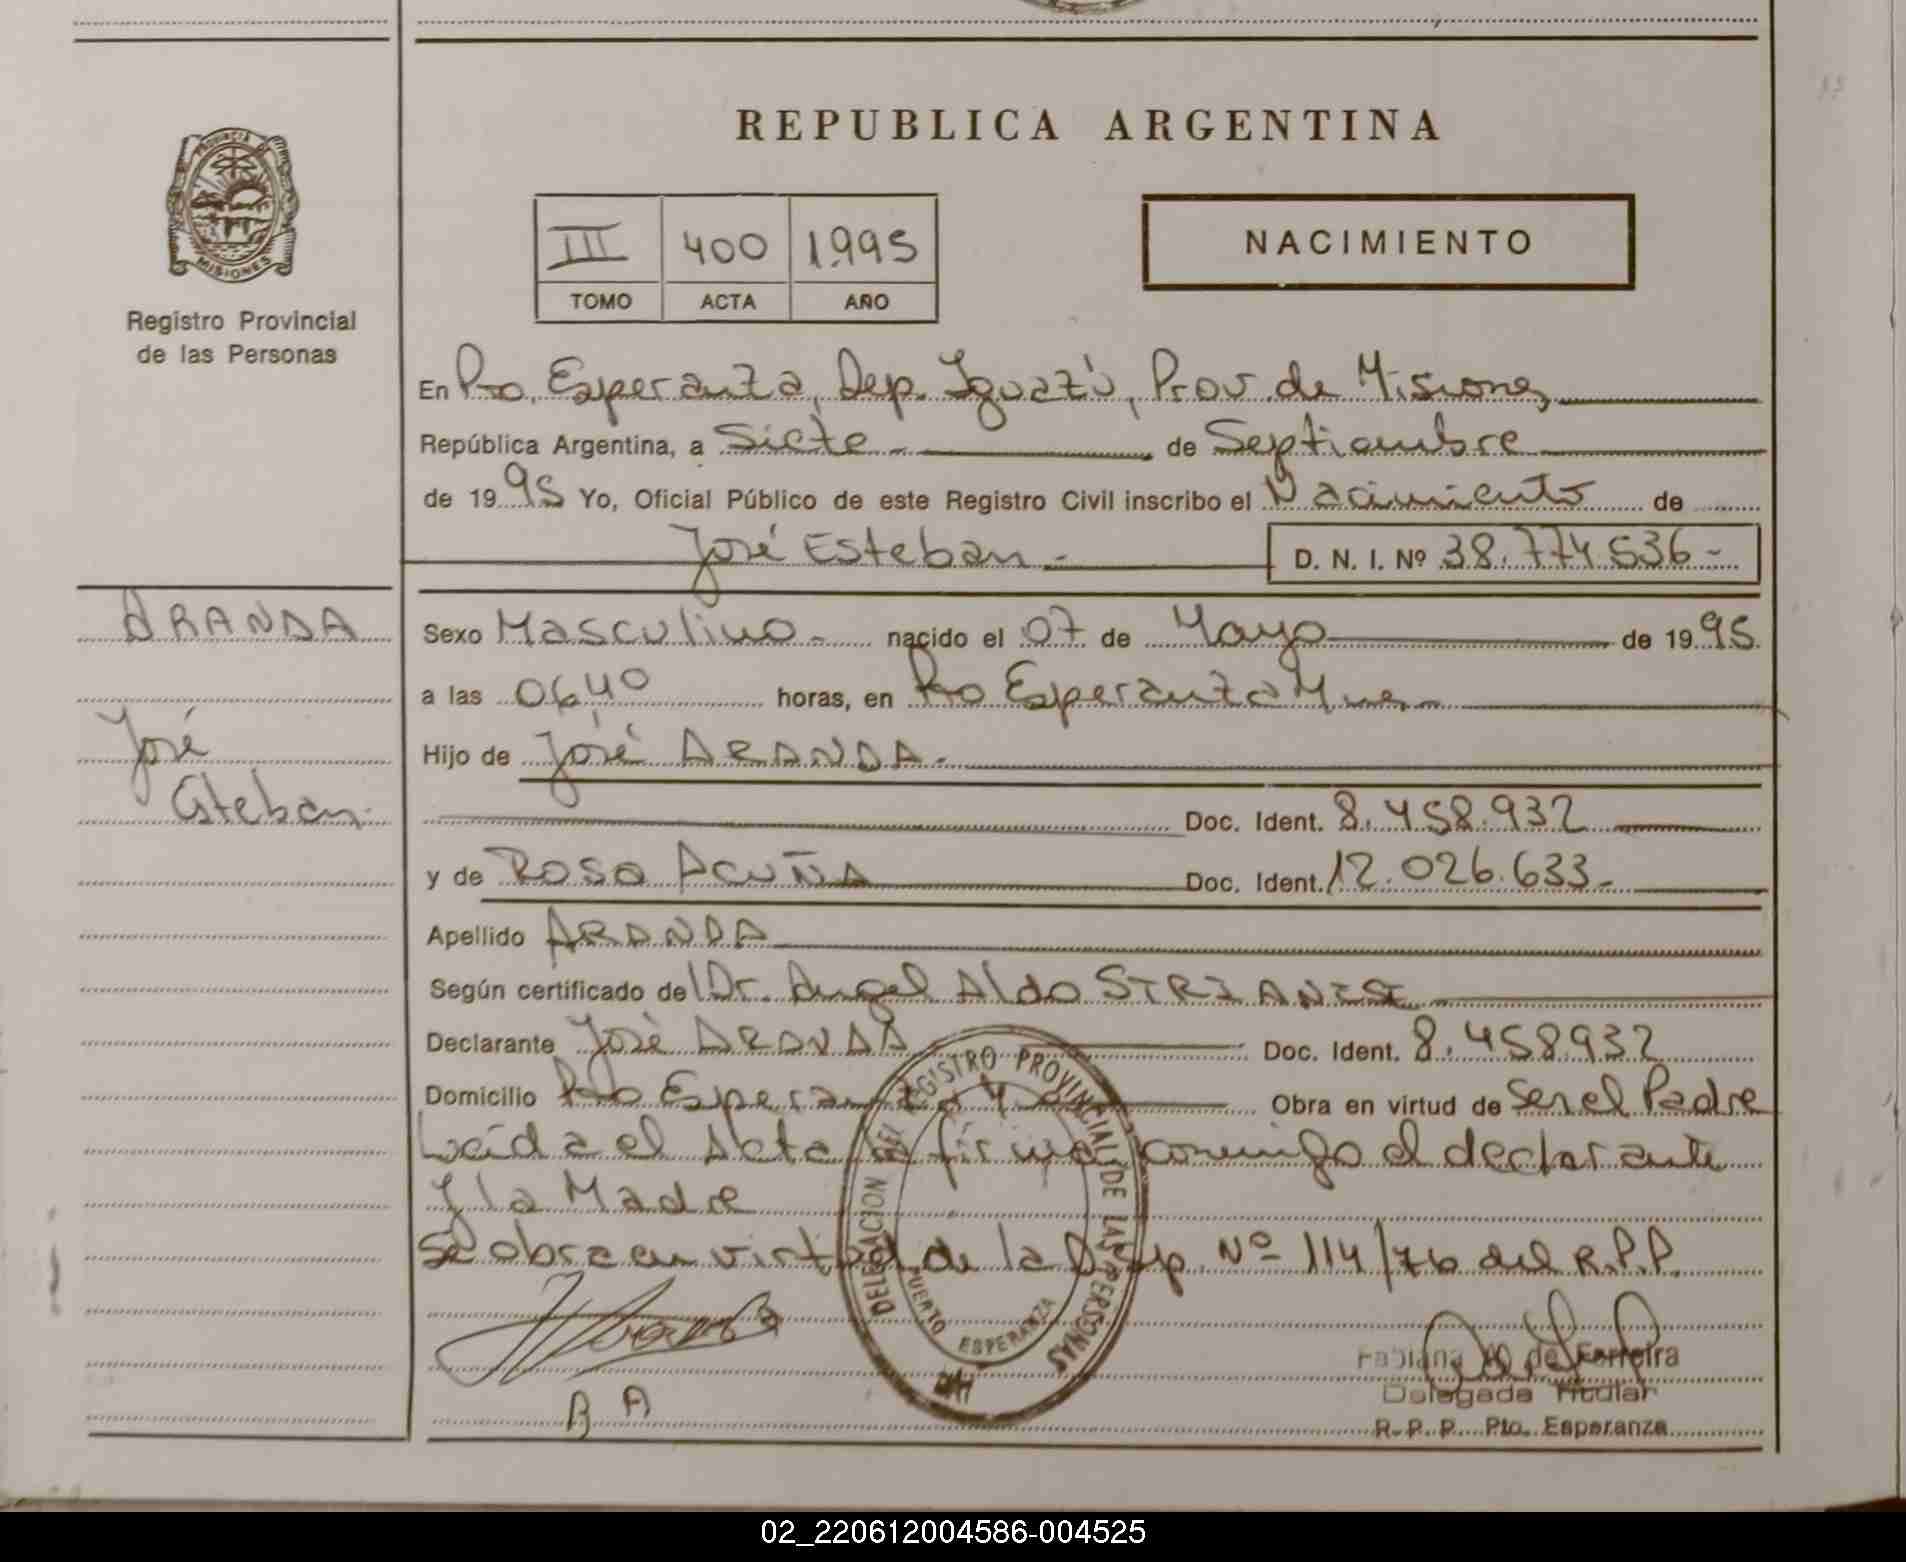 REPUBLICA ARGENTINA
PROVINCIA DE MISIONES
Registro Provincial
de las Personas
III 400 1995
TOMO ACTA AÑO
NACIMIENTO
En Pto. Esperanza, Dep. Iguazú, Prov. de Misiones
República Argentina, a Siete de Septiembre
de 1995 Yo, Oficial Público de este Registro Civil inscribo el Nacimiento de
José Esteban D. N. I. Nº 38.774.536-
ARANDA
José
Esteban
Sexo Masculino nacido el 07 de Mayo de 1995
a las 06,40 horas, en Pto Esperanza Mnes
Hijo de José ARANDA
Doc. Ident. 8.458.932
y de ROSA ACUÑA Doc. Ident. 12.026.633-
Apellido ARANDA
Según certificado del Dr. Angel Aldo
Declarante José ARANDA Doc. Ident. 8.458932
Domicilio Pto Esperanza Obra en virtud de Ser el Padre
Leída el Acta la firma conmigo el declarante
Y la Madre
Se obra en virtud de la Disp. Nº 114/76 del R.P.P.
DELEGACION DEL REGISTRO PROVINCIAL DE LAS PERSONAS
PUERTO ESPERANZA
R A
Fabiana de Ferreira
Delegada Titular
R. P. P. Pto. Esperanza
02_220612004586-004525